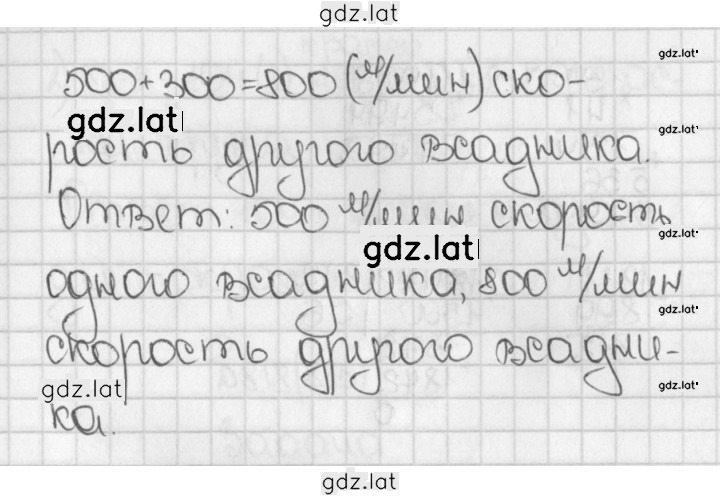 gdz.lat
500+300=800 (м/мин) ско-
gdz.lat
gdz.lat
рость другого всадника.
gdz.lat
Ответ: 500 м/мин скорость
gdz.lat
gdz.lat
одного всадника, 800 м/мин
gdz.lat
скорость другого всадни-
gdz.lat
gdz.lat
ка.
gdz.lat